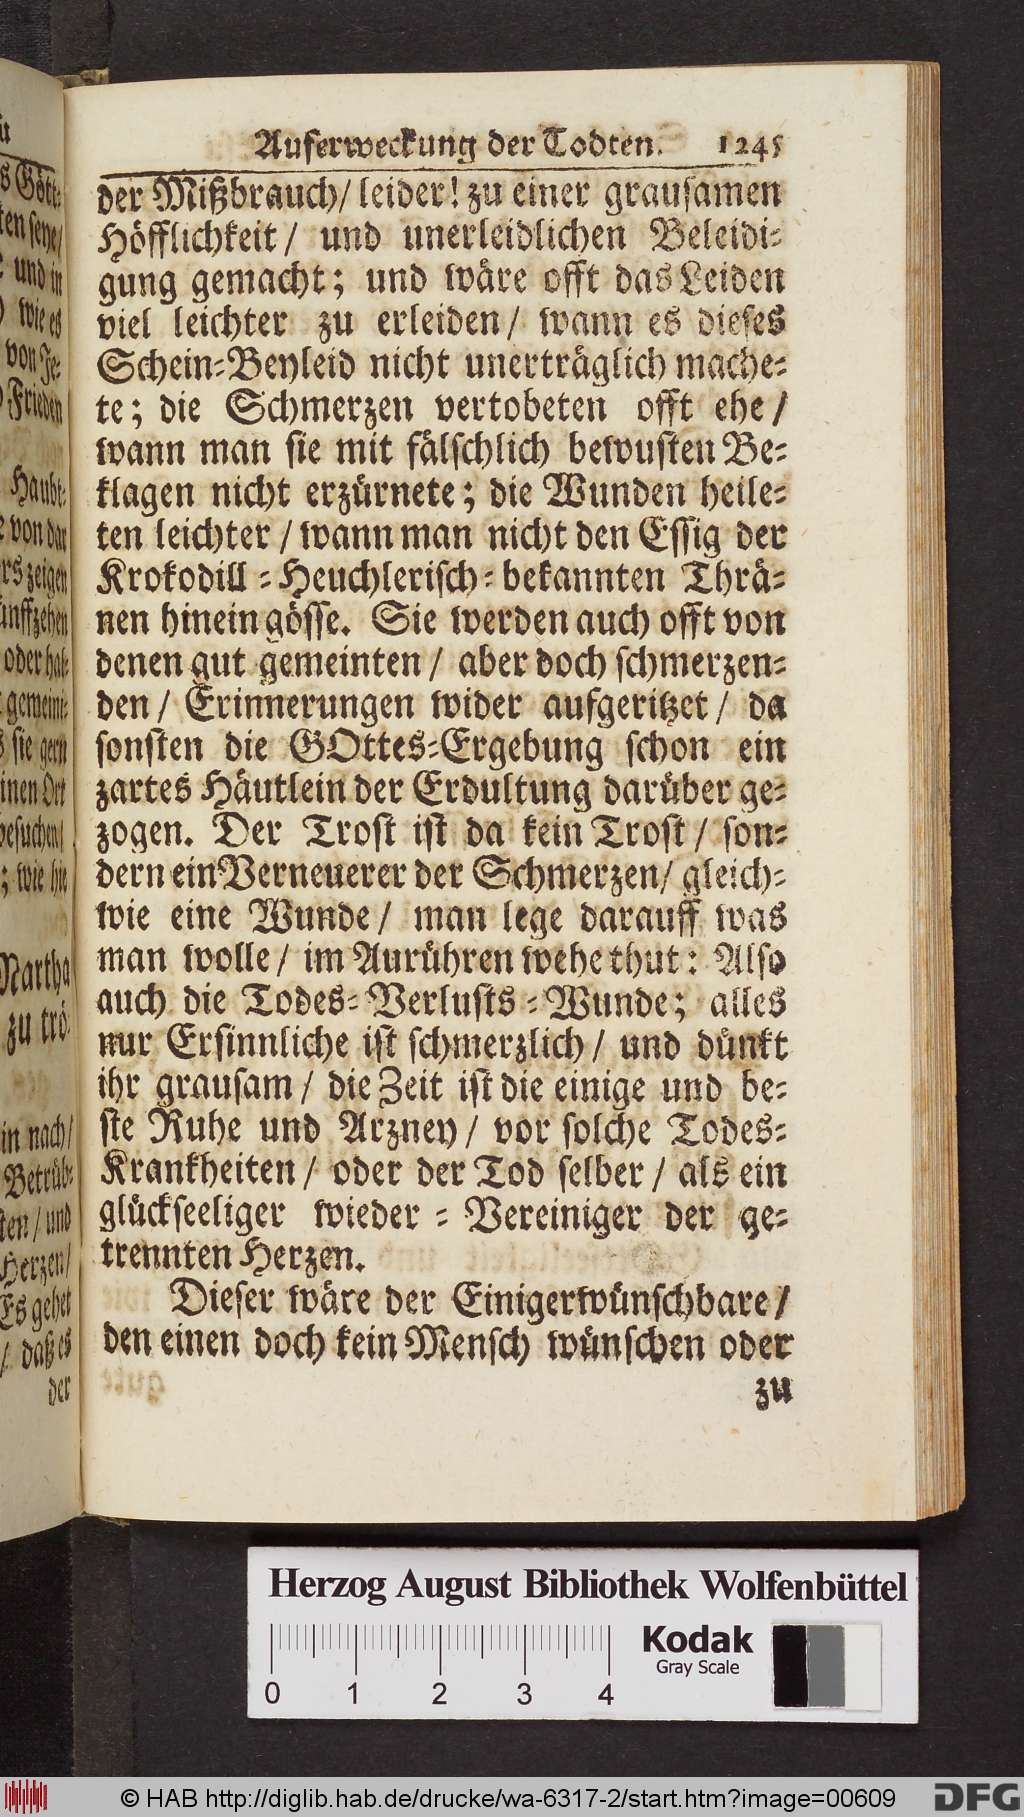 Auferweckung der Todten. 1245
der Mißbrauch/ leider! zu einer grausamen
Höfflichkeit/ und unerleidlichen Beleidi-
gung gemacht; und wäre offt das Leiden
viel leichter zu erleiden/ wann es dieses
Schein-Beyleid nicht unerträglich mache-
te; die Schmerzen vertobeten offt ehe/
wann man sie mit fälschlich bewusten Be-
klagen nicht erzürnete; die Wunden heile-
ten leichter/ wann man nicht den Essig der
Krokodill-Heuchlerisch-bekannten Thrä-
nen hinein gösse. Sie werden auch offt von
denen gut gemeinten/ aber doch schmerzen-
den/ Erinnerungen wider aufgeritzet/ da
sonsten die GOttes-Ergebung schon ein
zartes Häutlein der Erdultung darüber ge-
zogen. Der Trost ist da kein Trost/ son-
dern ein Verneuerer der Schmerzen/ gleich-
wie eine Wunde/ man lege darauff was
man wolle/ im Aurühren wehe thut: Also
auch die Todes-Verlusts-Wunde; alles
nur Ersinnliche ist schmerzlich/ und dünkt
ihr grausam/ die Zeit ist die einige und be-
ste Ruhe und Arzney/ vor solche Todes-
Krankheiten/ oder der Tod selber/ als ein
glückseeliger wieder-Vereiniger der ge-
trennten Herzen.
Dieser wäre der Einigerwünschbare/
den einen doch kein Mensch wünschen oder
zu
s Gött-
ten seye/
und in
wie es
von Je-
Frieden
Haubt-
von dar
rs zeigen
ünffzehen
oder hal-
gemeini-
sie gern
inen Ort
besuchen/
; wie hie
Martha
zu trö-
in nach/
Betrüb-
ten/ und
Herzen/
Es gehet
/ daß es
der
Herzog August Bibliothek Wolfenbüttel
Kodak
Gray Scale
0 1 2 3 4
© HAB http://diglib.hab.de/drucke/wa-6317-2/start.htm?image=00609
DFG